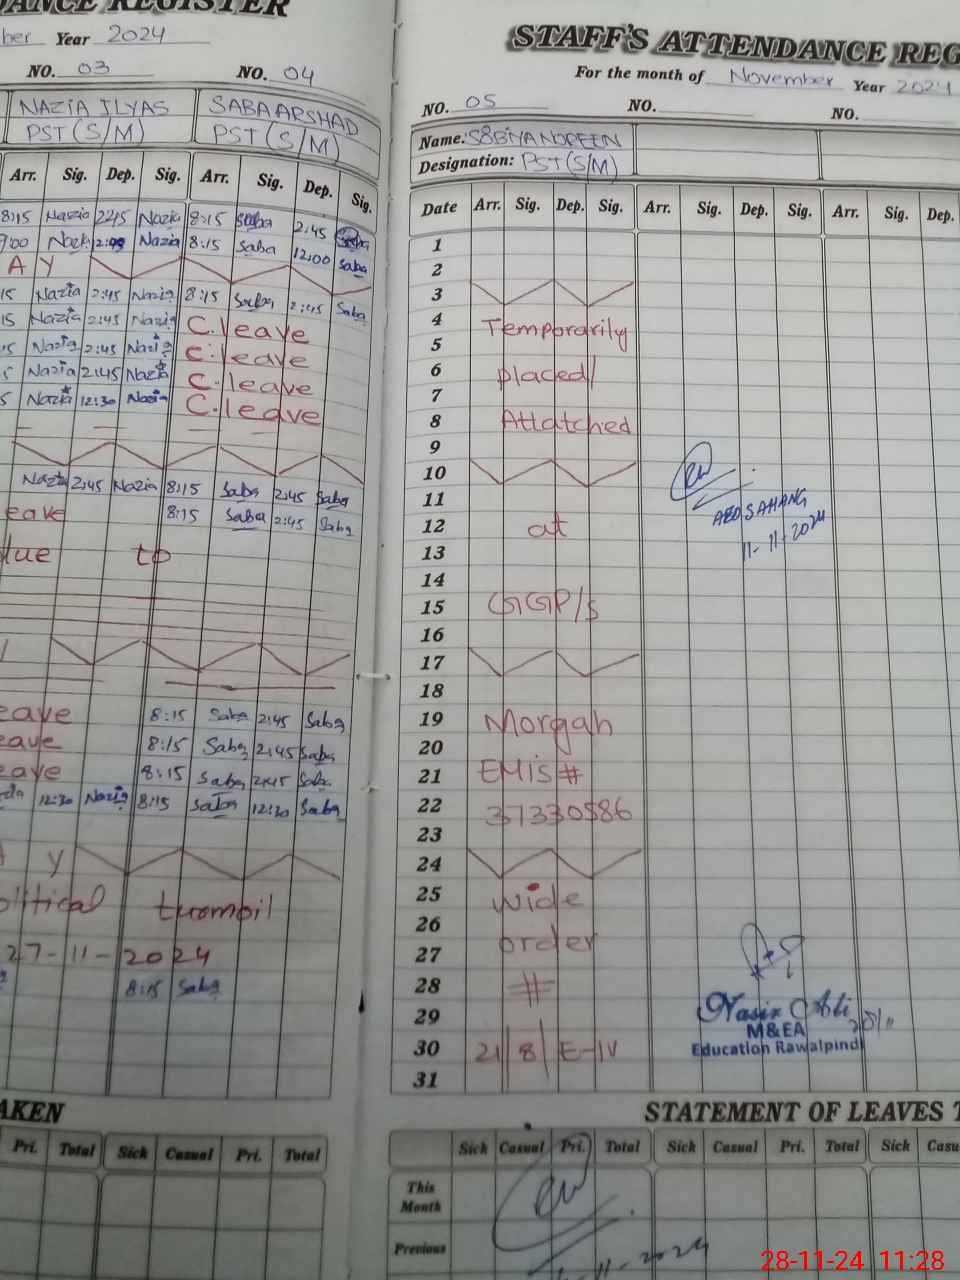 DANCE REGISTER
ber Year 2024
NO. 03 NO. 04
NAZIA ILYAS SABA ARSHAD
PST (S/M) PST (S/M)
Arr. Sig. Dep. Sig. Arr. Sig. Dep. Sig.
8:15 Nazia 2:45 Nazia 8:15 Saba 2:45 Saba
9:00 Nazia Nazia 8:15 Saba 12:00 Saba
A Y
15 Nazia 2:45 Nazia 8:15 Saba 2:45 Saba
15 Nazia 2:45 Nazia C.leave
15 Nazia 2:45 Nazia C.leave
5 Nazia 2:45 Nazia C.leave
5 Nazia 12:30 Nazia C.leave
Nazia 2:45 Nazia 8:15 Saba 2:45 Saba
eave 8:15 Saba 2:45 Saba
due to
eave 8:15 Saba 2:45 Saba
eave 8:15 Saba 2:45 Saba
eave 8:15 Saba 2:45 Saba
12:30 Nazia 8:15 Saba 12:30 Saba
Y
olitical turmoil
27-11-2024
8:15 Saba
AKEN
Pri. Total Sick Casual Pri. Total
STAFF'S ATTENDANCE REG
For the month of November Year 2024
NO. 05 NO. NO.
Name: SOBIYA NOREEN
Designation: PST (S/M)
Date Arr. Sig. Dep. Sig. Arr. Sig. Dep. Sig. Arr. Sig. Dep.
1
2
3
4 Temporarily
5
6 placed/
7
8 Attatched
9
10
11 AEO SAHANG
12 at 11-11-2024
13
14
15 GGP/S
16
17
18
19 Morgah
20
21 EMIS #
22 37330586
23
24
25 wide
26
27 order
28 #
29 Nasir Ali
M&EA
30 21/8/E-IV Education Rawalpindi
31
STATEMENT OF LEAVES T
Sick Casual Pri. Total Sick Casual Pri. Total Sick Casu
This Month
Previous
28-11-24 11:28